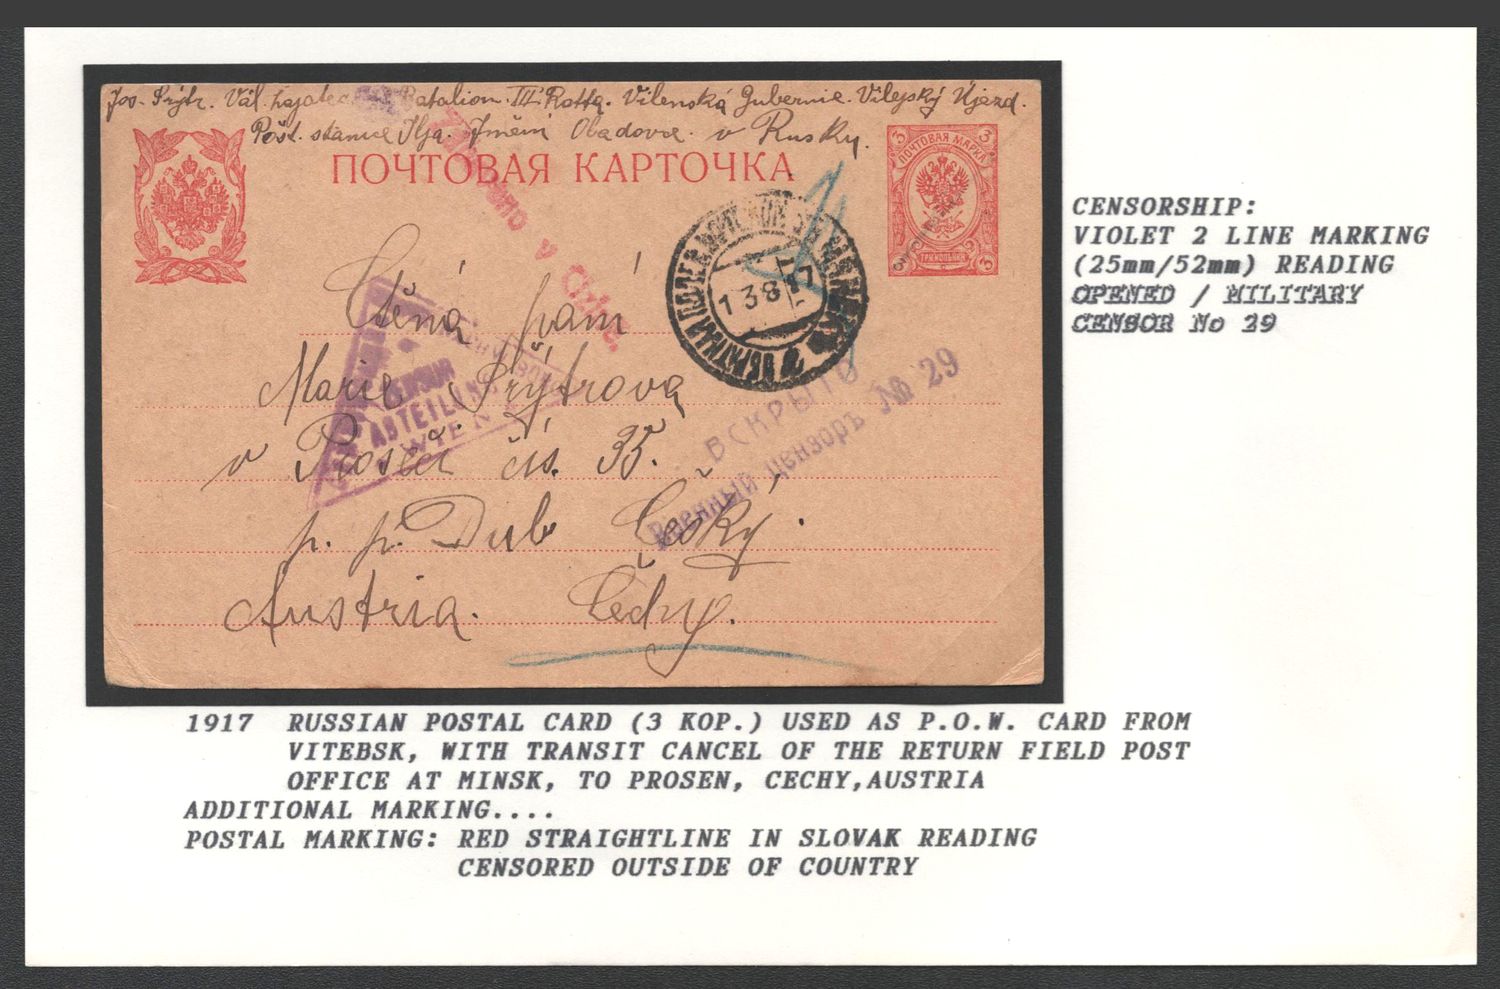 Jos. Prýtr. Vál. zajatec Batalion. III Rotta. Vilenská Gubernie. Vilejský Újezd.
Pošt. stanice Ilja. Jmění Obadovce. v Rusky.
ПОЧТОВАЯ КАРТОЧКА
3 3
ПОЧТОВАЯ МАРКА
3 ТРИ КОПѢЙКИ 3
v Cizině.
1 3 8 17
Ctěná paní
Marie Prýtrova
v Proseči čís. 35.
p. p. Dub Český.
Austria. Čechy.
ZENSUR
ABTEILUNG
WIEN
ВСКРЫТО
Военный цензоръ № 29
CENSORSHIP:
VIOLET 2 LINE MARKING
(25mm/52mm) READING
OPENED / MILITARY
CENSOR No 29
1917 RUSSIAN POSTAL CARD (3 KOP.) USED AS P.O.W. CARD FROM
VITEBSK, WITH TRANSIT CANCEL OF THE RETURN FIELD POST
OFFICE AT MINSK, TO PROSEN, CECHY,AUSTRIA
ADDITIONAL MARKING....
POSTAL MARKING: RED STRAIGHTLINE IN SLOVAK READING
CENSORED OUTSIDE OF COUNTRY